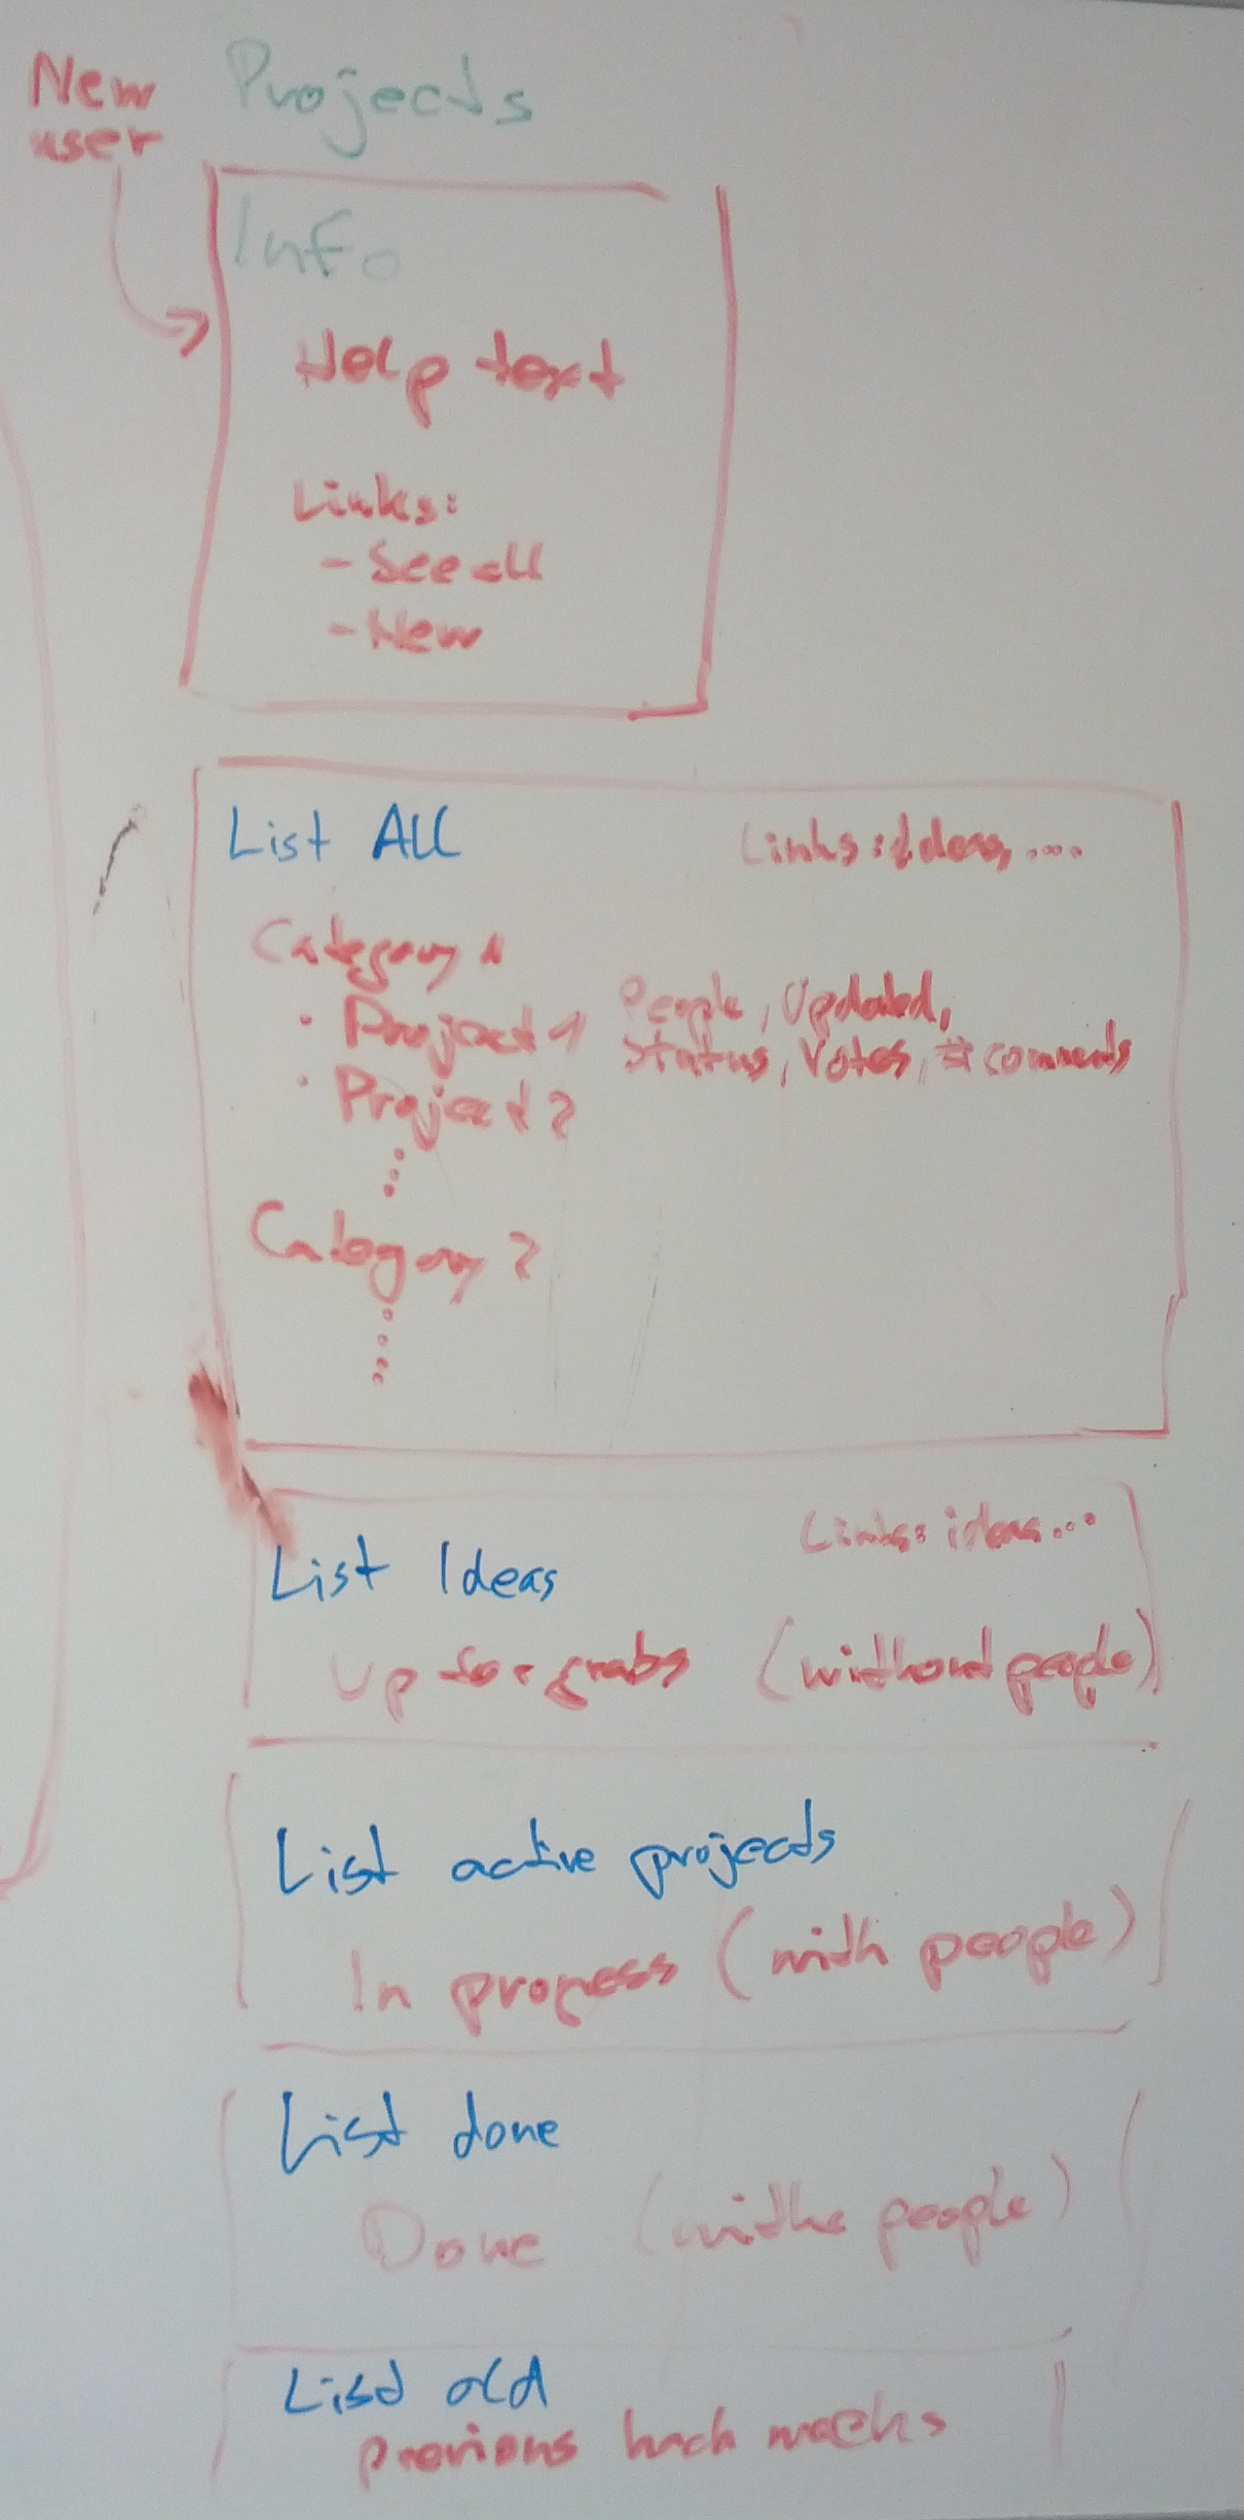 New
user
Projects
Info
Help text
Links:
- See all
- New
List All
Links: Ideas, ....
Category 1
• Project 1
People, Updated,
Status, Votes, # comments
• Project 2
Category 2
List Ideas
Links: ideas...
Up for grabs (without people)
List active projects
In progress (with people)
List done
Done (withe people)
List old
previous hack weeks